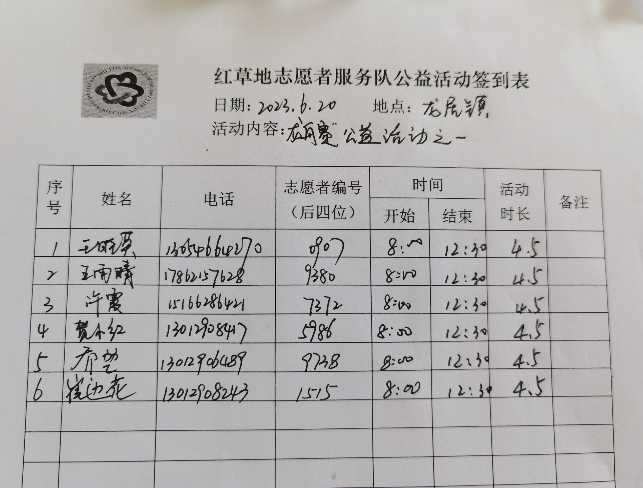 红草地志愿者服务队公益活动签到表
日期：2023.6.20 地点：龙居镇
活动内容：公益活动之一
序号 姓名 电话 志愿者编号（后四位） 时间 开始 结束 活动时长 备注
1 王 13054664270 0907 8:00 12:30 4.5
2 王雨晴 17862157628 9380 8:00 12:30 4.5
3 许霞 15166286421 7372 8:00 12:30 4.5
4 13012908417 5986 8:00 12:30 4.5
5 希望 13012906489 9738 8:00 12:30 4.5
6 崔 13012908243 1515 8:00 12:30 4.5